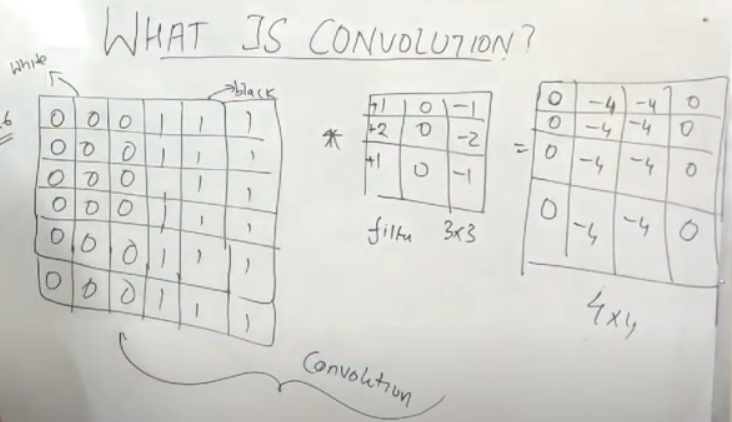 WHAT IS CONVOLUTION?
White
black
0 0 0 1 1 1
0 0 0 1 1 1
0 0 0 1 1
0 0 0 1 1 1
0 0 0 1 1 1
0 0 0 1 1 1
*
+1 0 -1
+2 0 -2
+1 0 -1
filter 3x3
=
0 -4 -4 0
0 -4 -4 0
0 -4 -4 0
0 -4 -4 0
4x4
Convolution